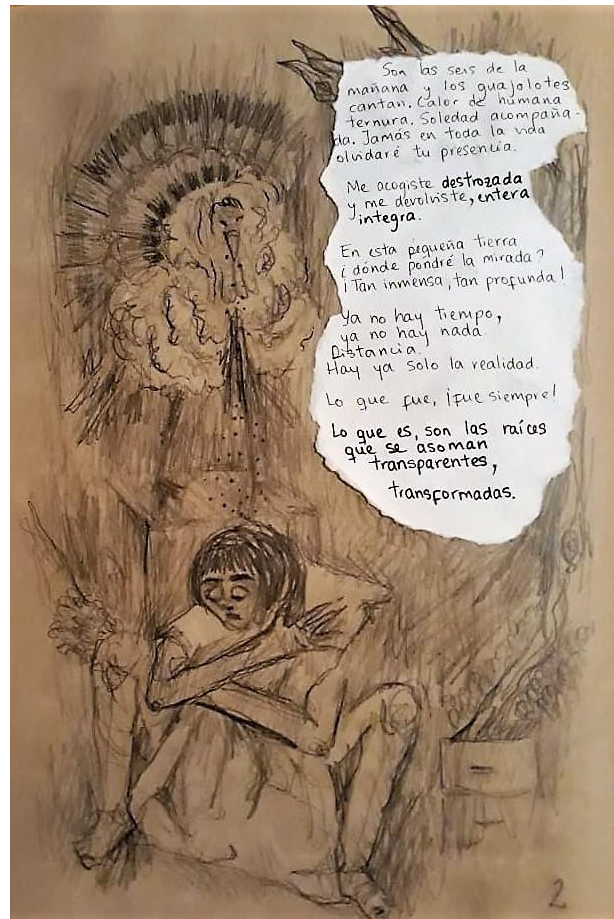 Son las seis de la
mañana y los guajolotes
cantan. Calor de humana
ternura. Soledad acompaña-
da. Jamás en toda la vida
olvidaré tu presencia.
Me acogiste destrozada
y me devolviste, entera
integra.
En esta pequeña tierra
¿dónde pondré la mirada?
¡Tan inmensa, tan profunda!
Ya no hay tiempo,
ya no hay nada.
Distancia.
Hay ya solo la realidad.
Lo que fue, ¡fue siempre!
Lo que es, son las raíces
que se asoman
transparentes,
transformadas.
2